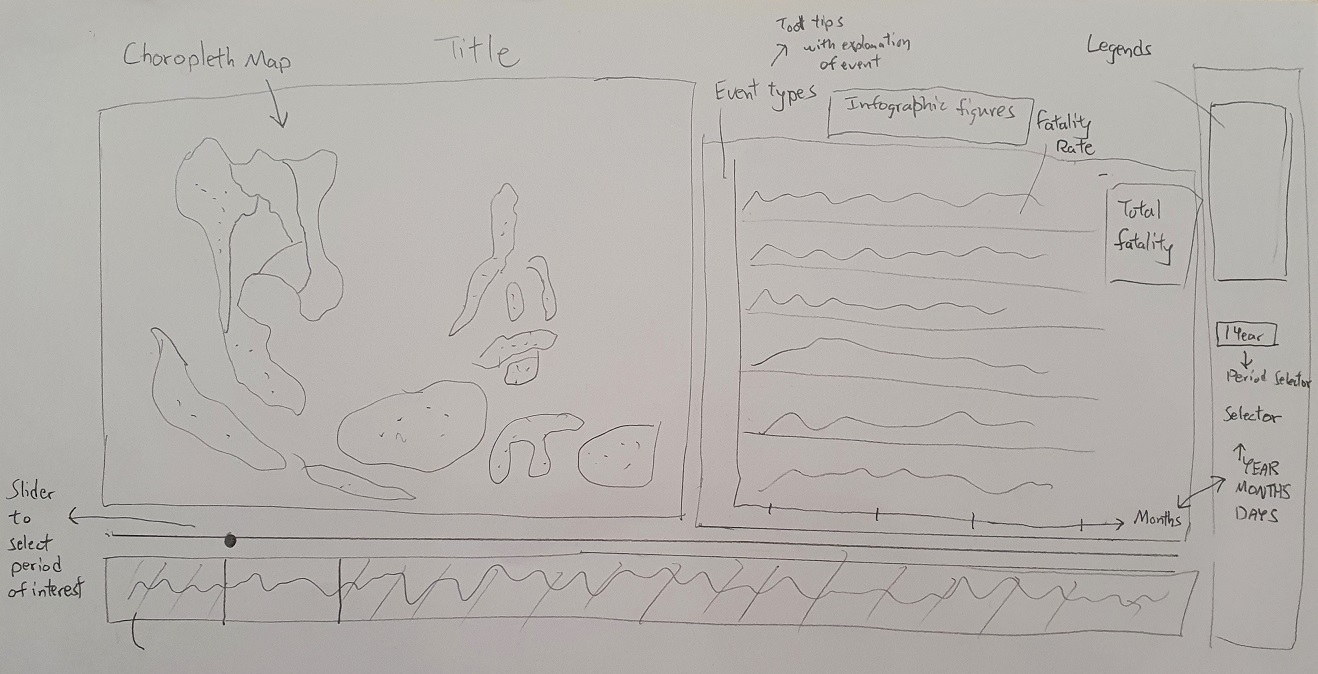 Title
Choropleth Map
Tool tips
with explanation
of event
Event types
Infographic figures
Fatality
Rate
Legends
Total
fatality
1 Year
Period Selector
Selector
YEAR
MONTHS
DAYS
Months
Slider
to
select
period
of interest